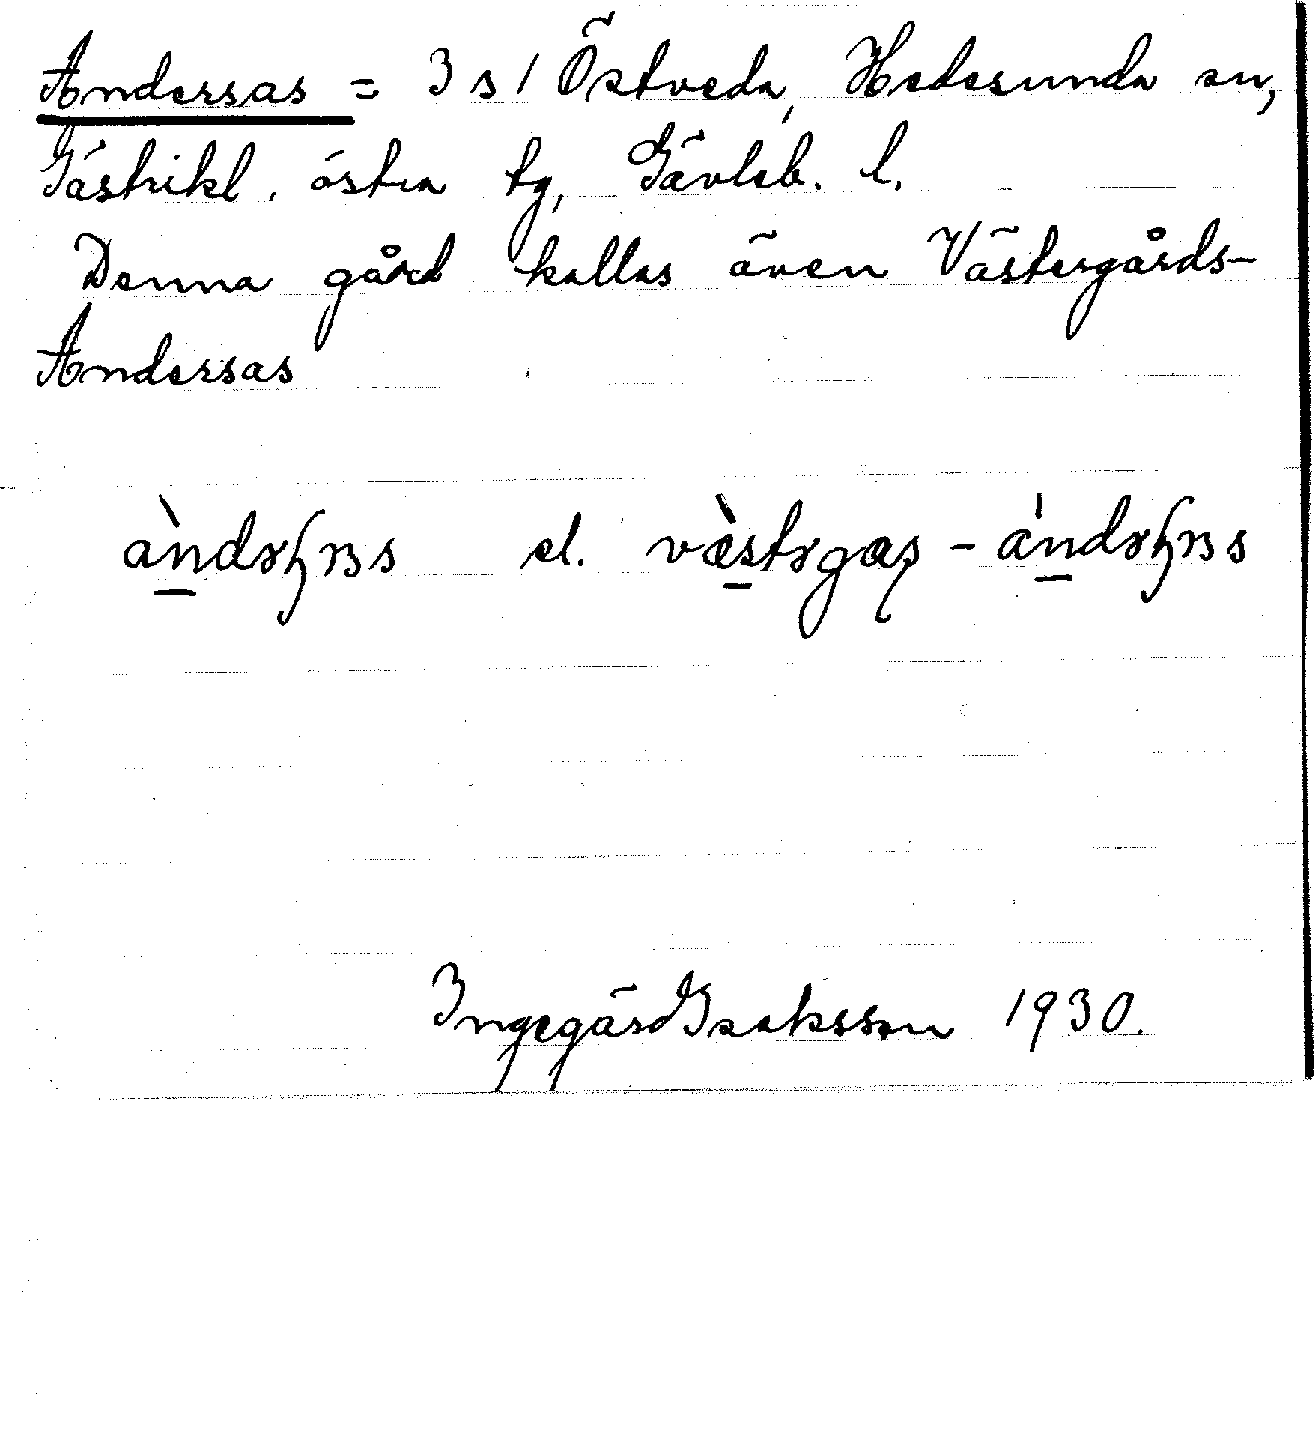 Anderssas = 3 s 1 Östveda, Hedesunda sn,
Gästrikl. östra tg, Gävleb. l.
Denna gård kallas även Västergårds-
Anderssas
el.
Ingegärd Isaksson 1930.